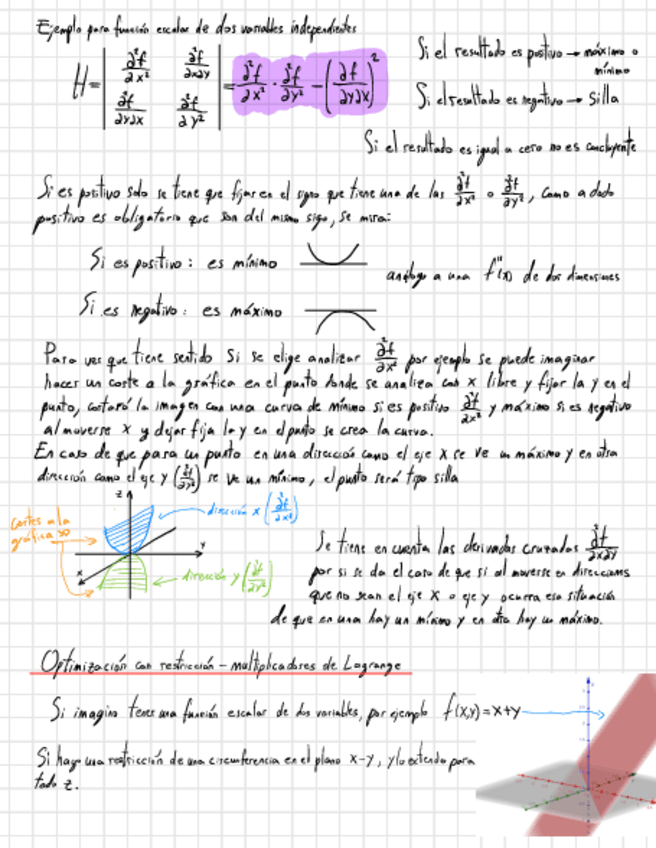 Ejemplo para función escalar de dos variables independientes
H = | ∂²f/∂x² ∂²f/∂x∂y ; ∂²f/∂y∂x ∂²f/∂y² | = ∂²f/∂x² · ∂²f/∂y² − (∂f/∂y∂x)²
Si el resultado es positivo → máximo o
mínimo
Si el resultado es negativo → Silla
Si el resultado es igual a cero no es concluyente
Si es positivo solo se tiene que fijar en el signo que tiene una de las ∂²f/∂x² o ∂²f/∂y², como a dado
positivo es obligatorio que son del mismo sigo, se mira:
Si es positivo: es mínimo
análogo a una f''(x) de dos dimensiones
Si es negativo: es máximo
Para ver que tiene sentido Si se elige analizar ∂²f/∂x² por ejemplo se puede imaginar
hacer un corte a la gráfica en el punto donde se analiza con x libre y fijar la y en el
punto, cortará la imagen con una curva de mínimo si es positivo ∂²f/∂x² y máximo si es negativo
al moverse x y dejar fija la y en el punto se crea la curva.
En caso de que para un punto en una dirección como el eje x se ve un máximo y en otra
dirección como el eje y (∂²f/∂y²) se ve un mínimo, el punto será tipo silla
z
dirección x (∂²f/∂x²)
Cortes a la
gráfica
y
x
dirección y (∂²f/∂y²)
Se tiene en cuenta las derivadas cruzadas ∂²f/∂x∂y
por si se da el caso de que si al moverse en direcciones
que no sean el eje x o eje y ocurra esa situación
de que en una hay un mínimo y en otra hay un máximo.
Optimización con restricción – multiplicadores de Lagrange
Si imagino tener una función escalar de dos variables, por ejemplo f(x,y)=x+y
Si hago una restricción de una circunferencia en el plano x-y, y lo extiendo para
todo z.